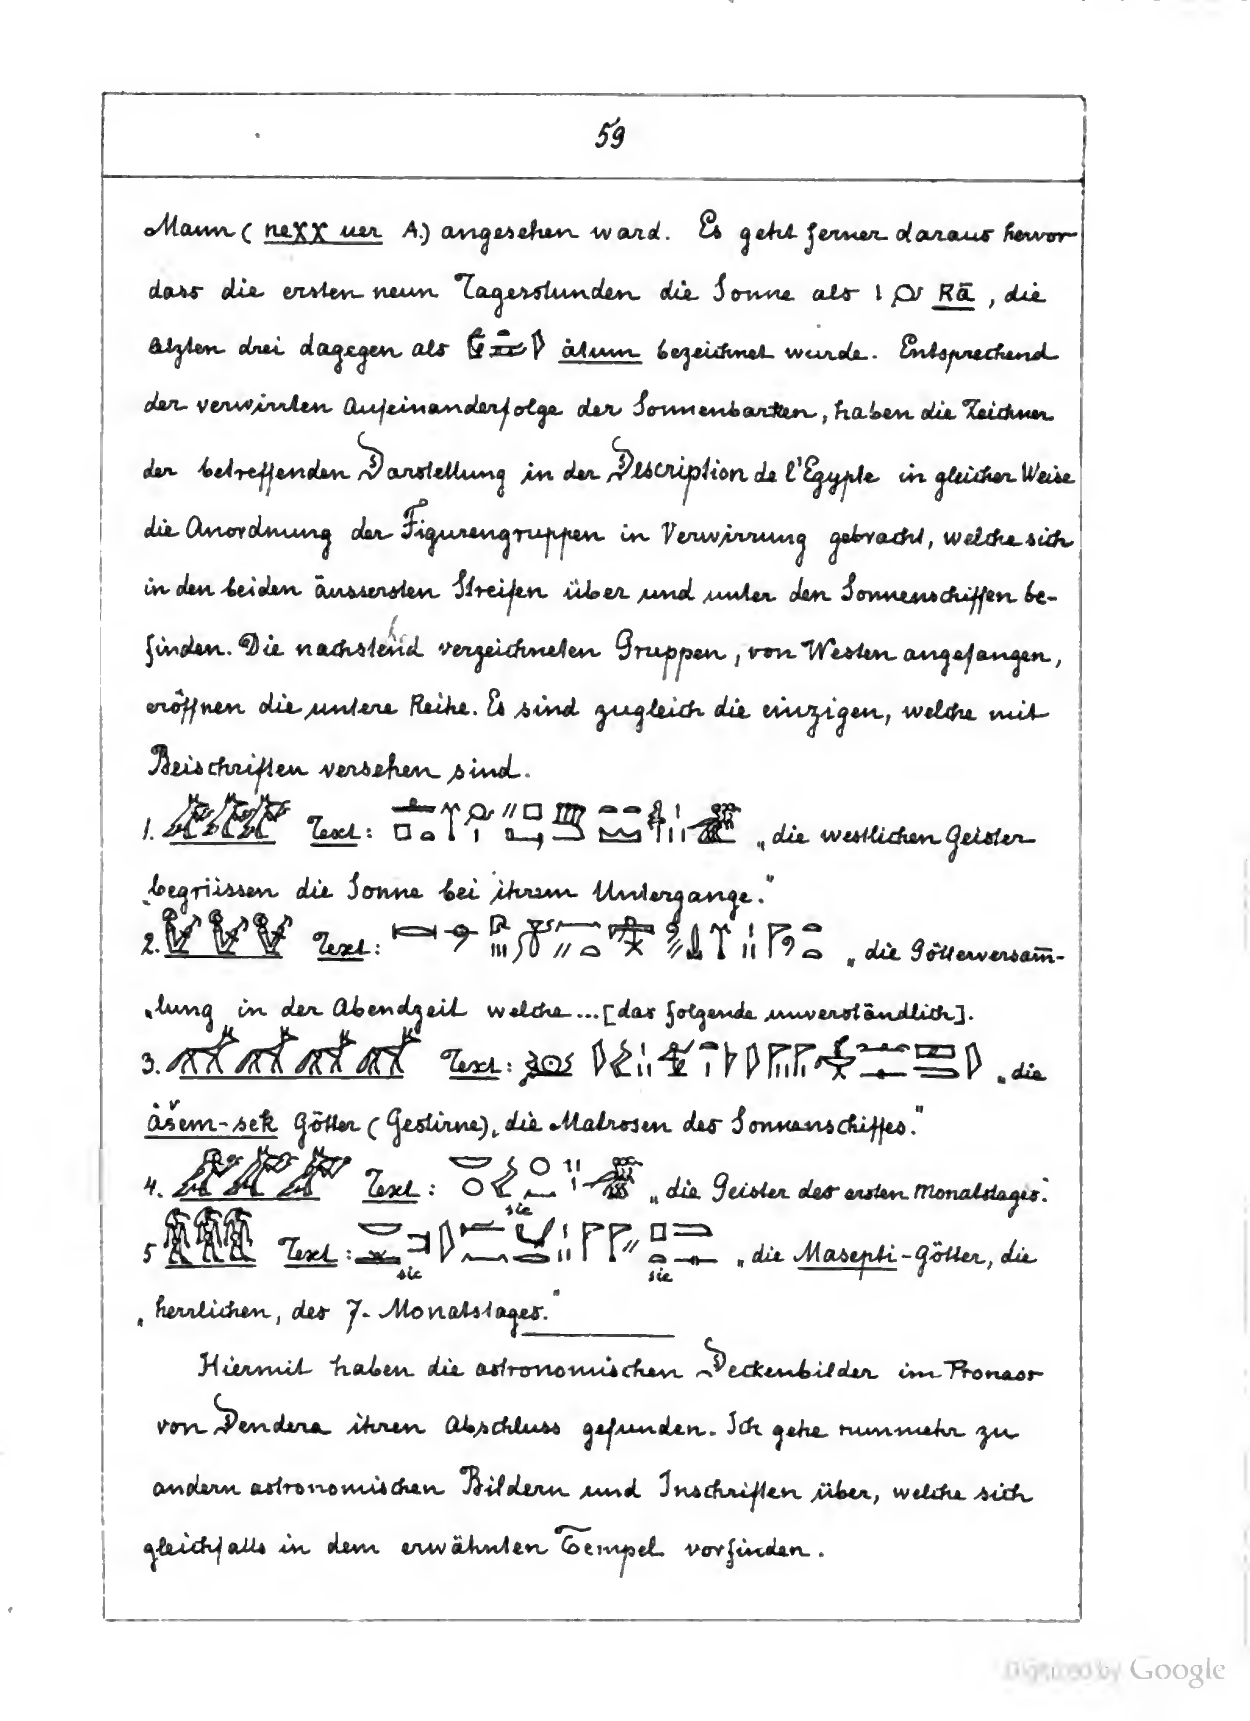 59
Mann (neχχ uer A.) angesehen ward. Es geht ferner daraus hervor
dass die ersten neun Tagesstunden die Sonne als Rā, die
letzten drei dagegen als àtum bezeichnet wurde. Entsprechend
der verwirrten Aufeinanderfolge der Sonnenbarken, haben die Zeichner
der betreffenden Darstellung in der Description de l'Egypte in gleicher Weise
die Anordnung der Figurengruppen in Verwirrung gebracht, welche sich
in den beiden äussersten Streifen über und unter den Sonnenschiffen be-
finden. Die nachstehend verzeichneten Gruppen, von Westen angefangen,
eröffnen die untere Reihe. Es sind zugleich die einzigen, welche mit
Beischriften versehen sind.
1. Text: „die westlichen Geister
„begrüssen die Sonne bei ihrem Untergange."
2. Text: „die Götterversam̄-
„lung in der Abendzeit welche... [das folgende unverständlich].
3. Text: „die
àšem-sek Götter (Gestirne), die Matrosen des Sonnenschiffes."
4. Text: „die Geister des ersten Monatstages."
sic
5 Text: „die Masepti-Götter, die
sic sic
„herrlichen, des 7. Monatstages."
Hiermit haben die astronomischen Deckenbilder im Pronaos
von Dendera ihren Abschluss gefunden. Ich gehe nunmehr zu
andern astronomischen Bildern und Inschriften über, welche sich
gleichfalls in dem erwähnten Tempel vorfinden.
Digitized by Google